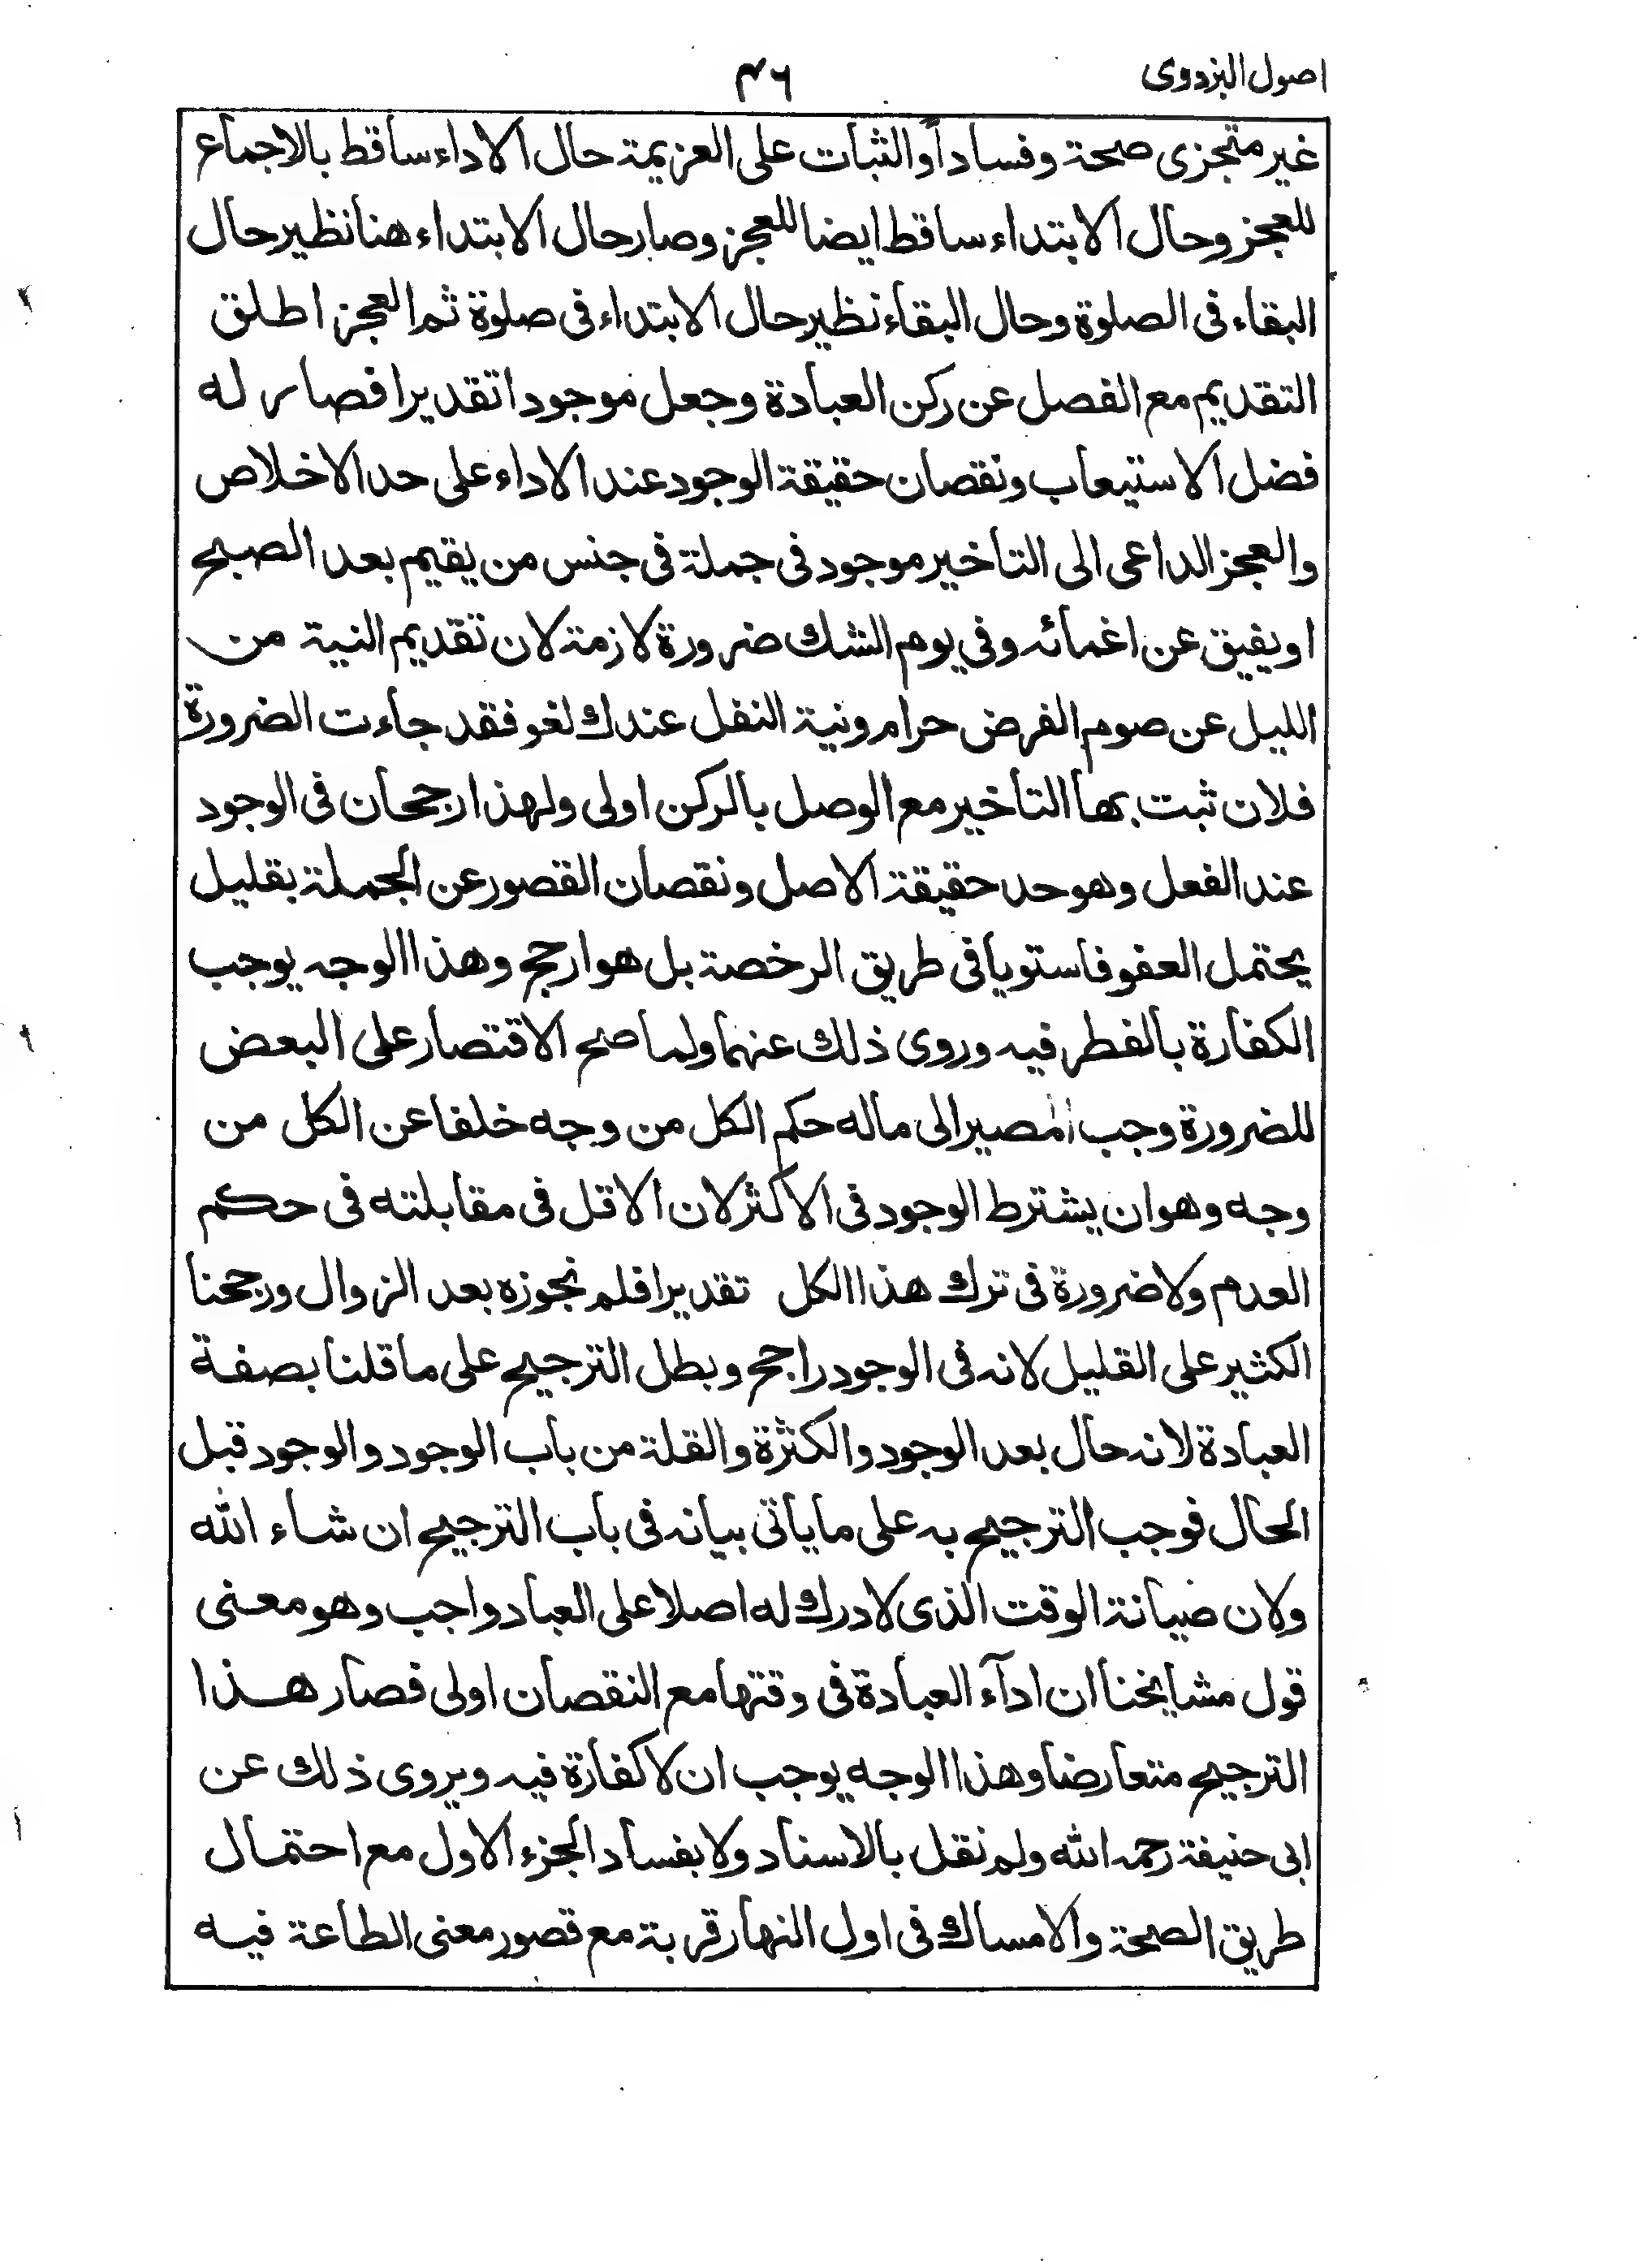 اصول البزدوی
۴۶
غیر متجزی صحة وفسادا والثبات علی العزیمة حال الاداء ساقط بالاجماع
للعجز وحال الابتداء ساقط ایضا للعجز وصار حال الابتداء هنا نظیر حال
البقاء فی الصلوة وحال البقاء نظیر حال الابتداء فی صلوة ثم العجز اطلق
التقدیم مع الفصل عن رکن العبادة وجعل موجودا تقدیرا فصار له
فضل الاستیعاب ونقصان حقیقة الوجود عند الاداء علی حد الاخلاص
والعجز الداعی الی التأخیر موجود فی جملة فی جنس من یقیم بعد الصبح
او یفیق عن اغمائه وفی یوم الشك ضرورة لازمة لان تقدیم النیة من
اللیل عن صوم الفرض حرام ونیة النفل عندك لغو فقد جاءت الضرورة
فلان ثبت بها التأخیر مع الوصل بالرکن اولی ولهذا رجحان فی الوجود
عند الفعل وهو حد حقیقة الاصل ونقصان القصور عن الجملة بقلیل
یحتمل العفو فاستویا فی طریق الرخصة بل هو ارجح وهذا الوجه یوجب
الکفارة بالفطر فیه وروی ذلك عنهما ولما صح الاقتصار علی البعض
للضرورة وجب المصیر الی ماله حکم الکل من وجه خلفا عن الکل من
وجه وهو ان یشترط الوجود فی الاکثر لان الاقل فی مقابلته فی حکم
العدم ولا ضرورة فی ترك هذا الکل تقدیرا فلم نجوزه بعد الزوال ورجحنا
الکثیر علی القلیل لانه فی الوجود راجح وبطل الترجیح علی ما قلنا بصفة
العبادة لانه حال بعد الوجود والکثرة والقلة من باب الوجود والوجود قبل
الحال فوجب الترجیح به علی ما یأتی بیانه فی باب الترجیح ان شاء الله
ولان صیانة الوقت الذی لا درك له اصلا علی العباد واجب وهو معنی
قول مشایخنا ان ادآء العبادة فی وقتها مع النقصان اولی فصار هذا
الترجیح متعارضا وهذا الوجه یوجب ان لا کفارة فیه ویروی ذلك عن
ابی حنیفة رحمه الله ولم نقل بالاسناد ولا بفساد الجزء الاول مع احتمال
طریق الصحة والامساك فی اول النهار قربة مع قصور معنی الطاعة فیه